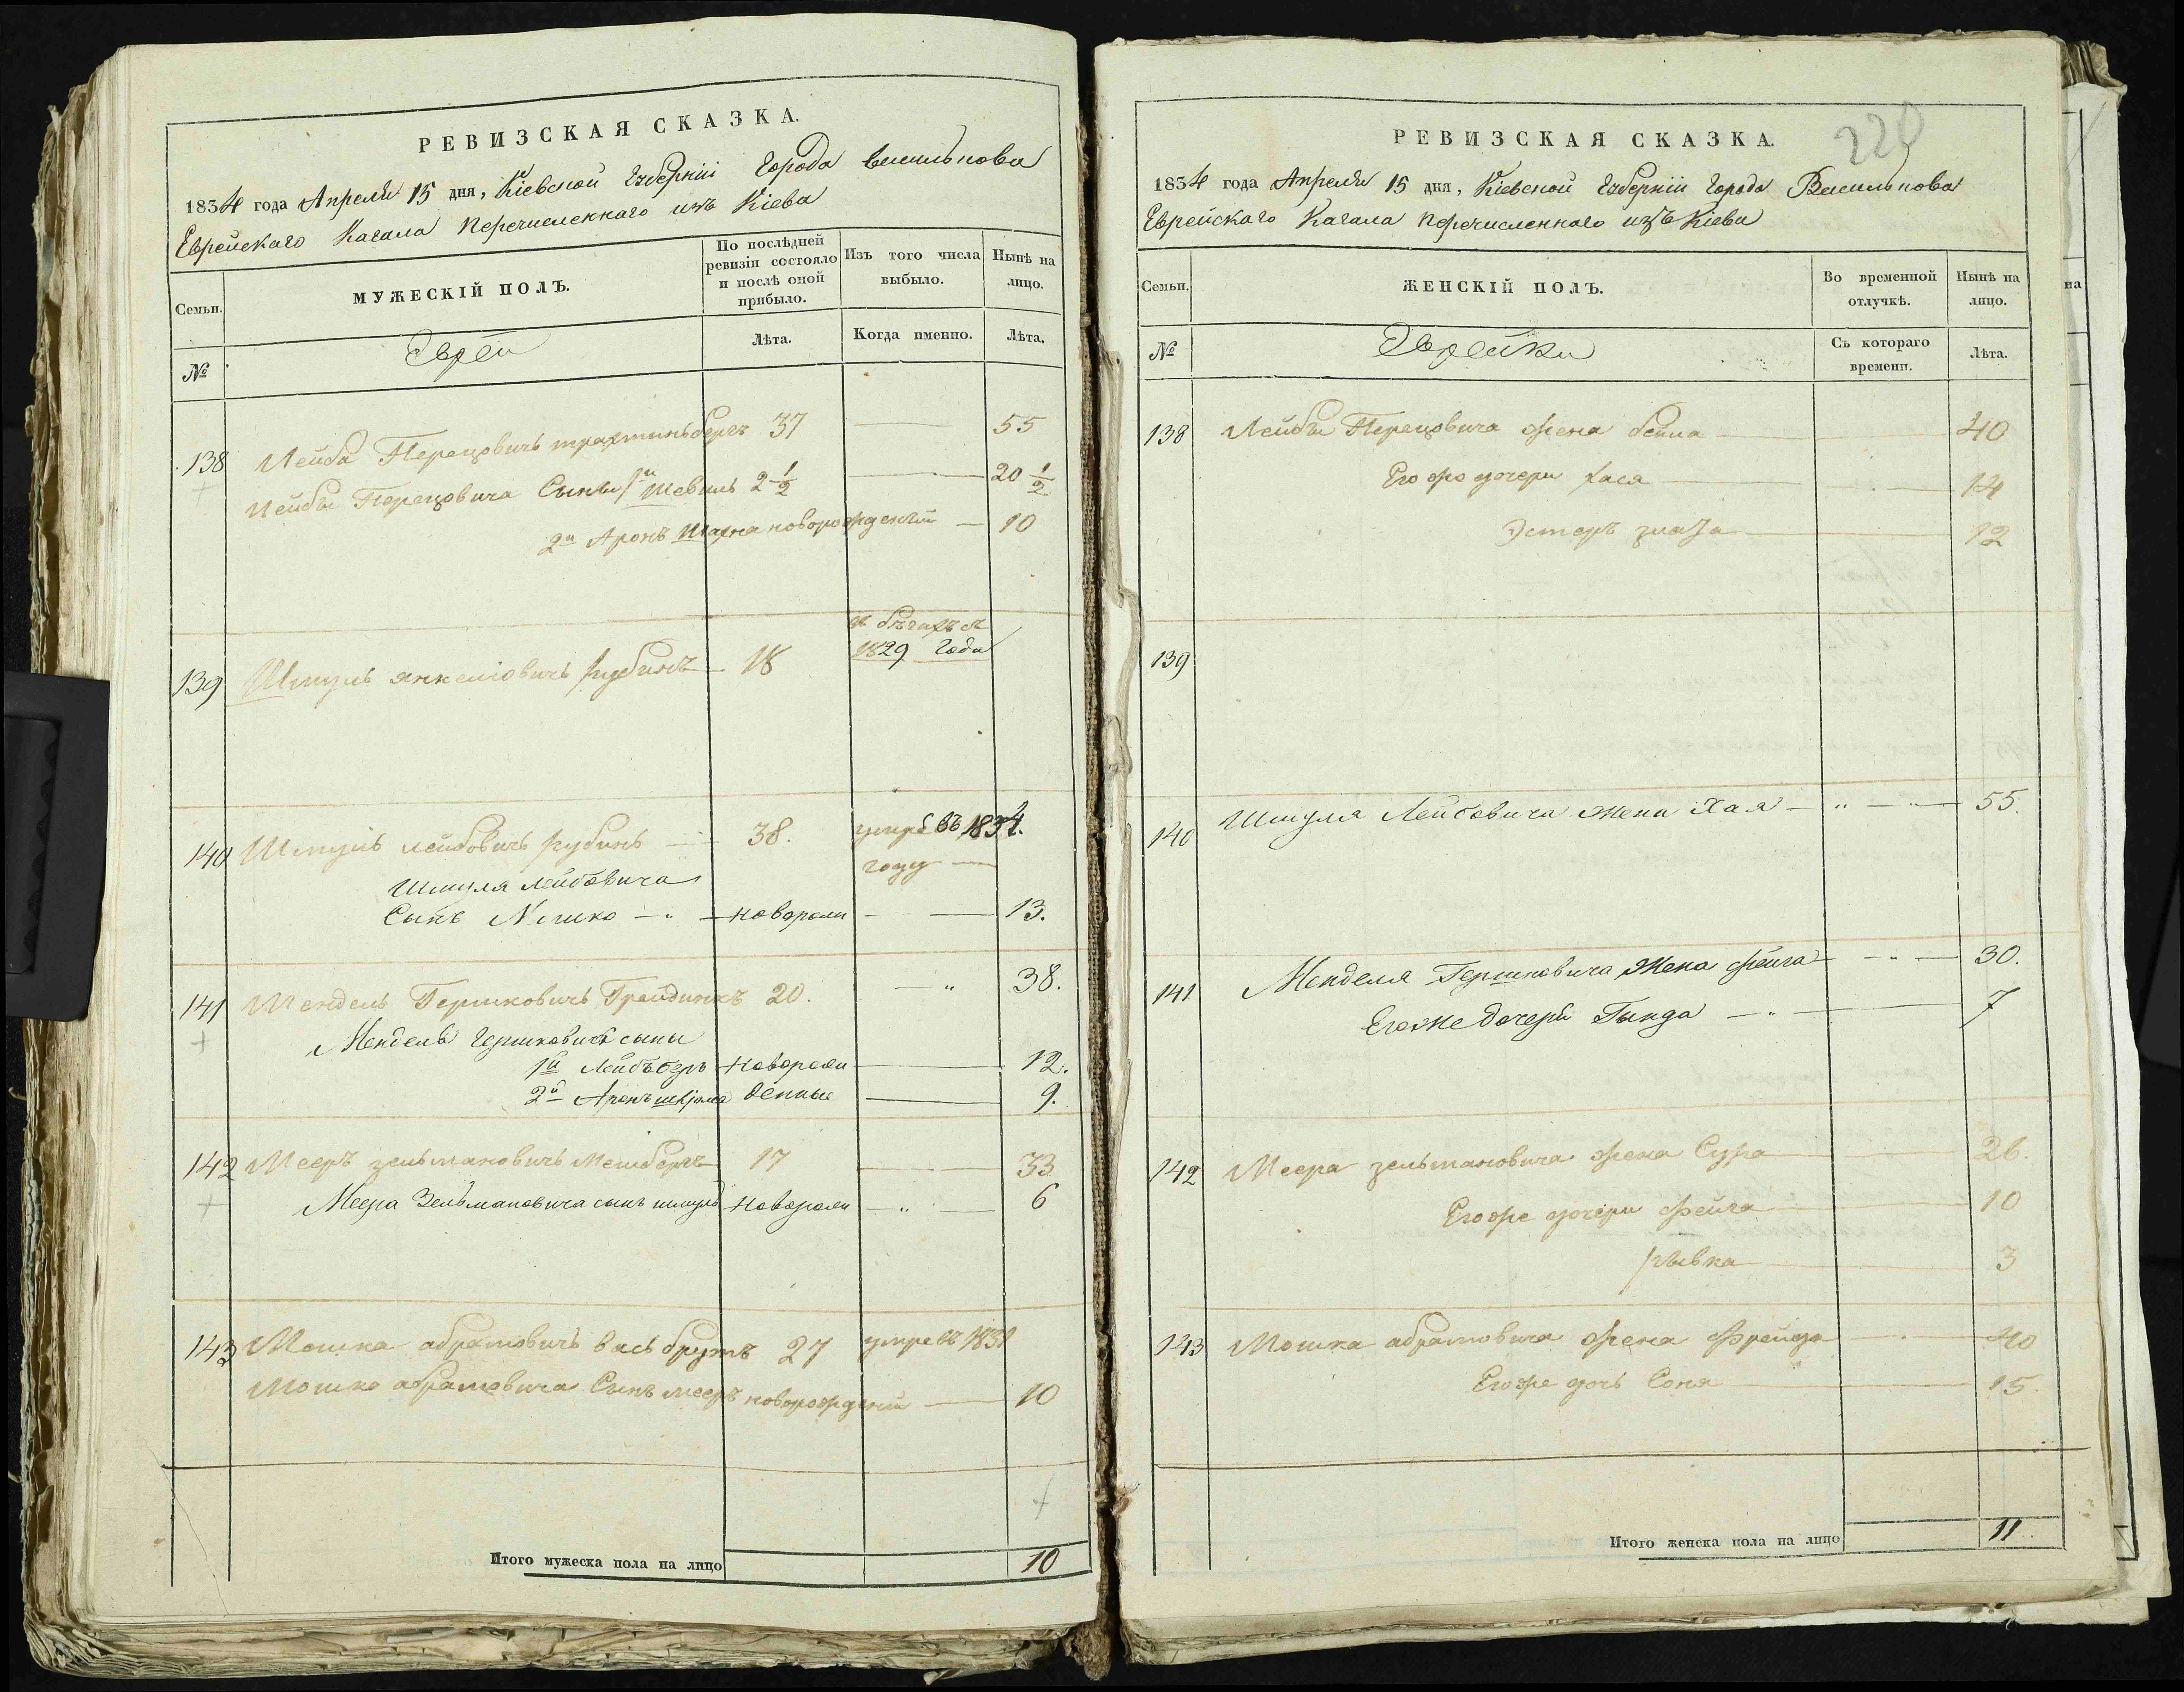 РЕВИЗСКАЯ СКАЗКА.
1834 года Апреля 15 дня, Кіевской Губерніи Города Василькова
Еврейскаго Кагала перечисленнаго изъ Кіева
Семьи.
МУЖЕСКІЙ ПОЛЪ.
По послѣдней ревизіи состояло и послѣ оной прибыло.
Изъ того числа выбыло.
Нынѣ на лицо.
№
Евреи
Лѣта.
Когда именно.
Лѣта.
138 Лейба Перецовичъ 37 — 55
Лейбы Перецовича Сыны 1й Шевель 2 1/2 — 20 1/2
2й Аронъ новорожденный — 10
въ бѣгахъ съ
1829 года
139 Шмуль янкеліовичъ рубинъ — 18
140 Шмуль лейбовичъ рубинъ — 38. умре въ 1834.
году —
Шмуля Лейбовича
Сынъ — " — новорожи — 13.
141 Мендель Гершковичъ 20. — " 38.
Мендель Гершковича сыны
1й Лейбъ беръ новорожи — 12.
2й Аронъ денные — 9.
142 Мееръ зельмановичъ 17 — 33
Меера Зельмановича сынъ шмуль новорожи — " — 6
143 Мошка абрамовичъ 27 умре въ 1831
Мошко абрамовича Сынъ мееръ новорожденій — 10
Итого мужеска пола на лицо 10
220
РЕВИЗСКАЯ СКАЗКА.
1834 года Апреля 15 дня, Кіевской Губерніи Города Василькова
Еврейскаго Кагала перечисленнаго изъ Кіева
Семьи.
ЖЕНСКІЙ ПОЛЪ.
Во временной отлучкѣ.
Нынѣ на лицо.
№
Еврейки
Съ котораго времени.
Лѣта.
138 Лейбы Перецовича жена бейла — 40
Его же дочери хася — 14
Эстеръ злата — 12
139
140 Шмуля Лейбовича жена Хая — " — " — 55.
141 Менделя Гершковича жена фейга — " — 30.
Его же дочери Гинда — " — 7
142 Меера зельмановича жена Сура — 26.
Его же дочери фейга — 10
рывка — 3
143 Мошка абрамовича жена Фрейда — 40
Его же дочь Соня — 15
Итого женска пола на лицо 11.